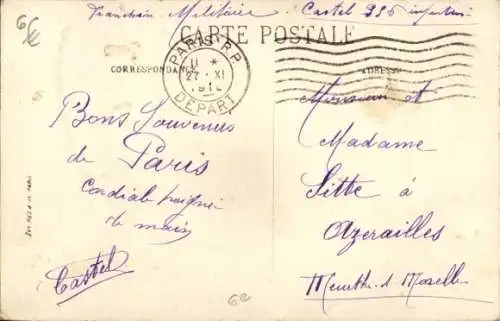 6€
Franchise Militaire Castel 226 infanterie
CARTE POSTALE
CORRESPONDANCE
ADRESSE
PARIS R.P.
11 *
27 · XI
DÉPART
Bons Souvenirs
de Paris
Cordiale poignée
de main
Castel
Monsieur et
Madame
Sitte à
Azerailles
Meurthe-et-Moselle
6€